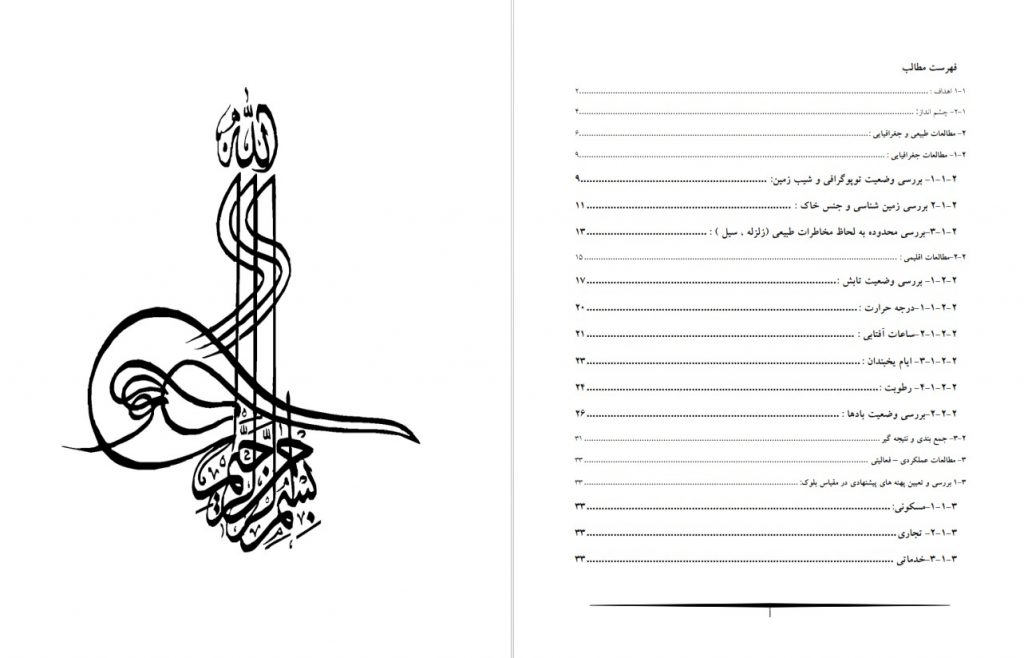 بسم الله الرحمن الرحیم
فهرست مطالب
۱-۱ اهداف : ۲
۱-۲- چشم انداز: ۴
۲- مطالعات طبیعی و جغرافیایی : ۶
۲-۱- مطالعات جغرافیایی : ۹
۲-۱-۱- بررسی وضعیت توپوگرافی و شیب زمین: ۹
۲-۱-۲ بررسی زمین شناسی و جنس خاک : ۱۱
۲-۱-۳-بررسی محدوده به لحاظ مخاطرات طبیعی (زلزله ، سیل ) : ۱۳
۲-۲-مطالعات اقلیمی : ۱۵
۲-۲-۱- بررسی وضعیت تابش : ۱۷
۲-۲-۱-۱-درجه حرارت : ۲۰
۲-۲-۱-۲-ساعات آفتابی : ۲۱
۲-۲-۱-۳- ایام یخبندان : ۲۳
۲-۲-۱-۴- رطوبت : ۲۴
۲-۲-۲-بررسی وضعیت بادها : ۲۶
۲-۳- جمع بندی و نتیجه گیر ۳۱
۳- مطالعات عملکردی – فعالیتی ۳۳
۳-۱ بررسی و تعیین پهنه های پیشنهادی در مقیاس بلوک: ۳۳
۳-۱-۱-مسکونی: ۳۳
۳-۱-۲- تجاری ۳۳
۳-۱-۳-خدماتی ۳۳